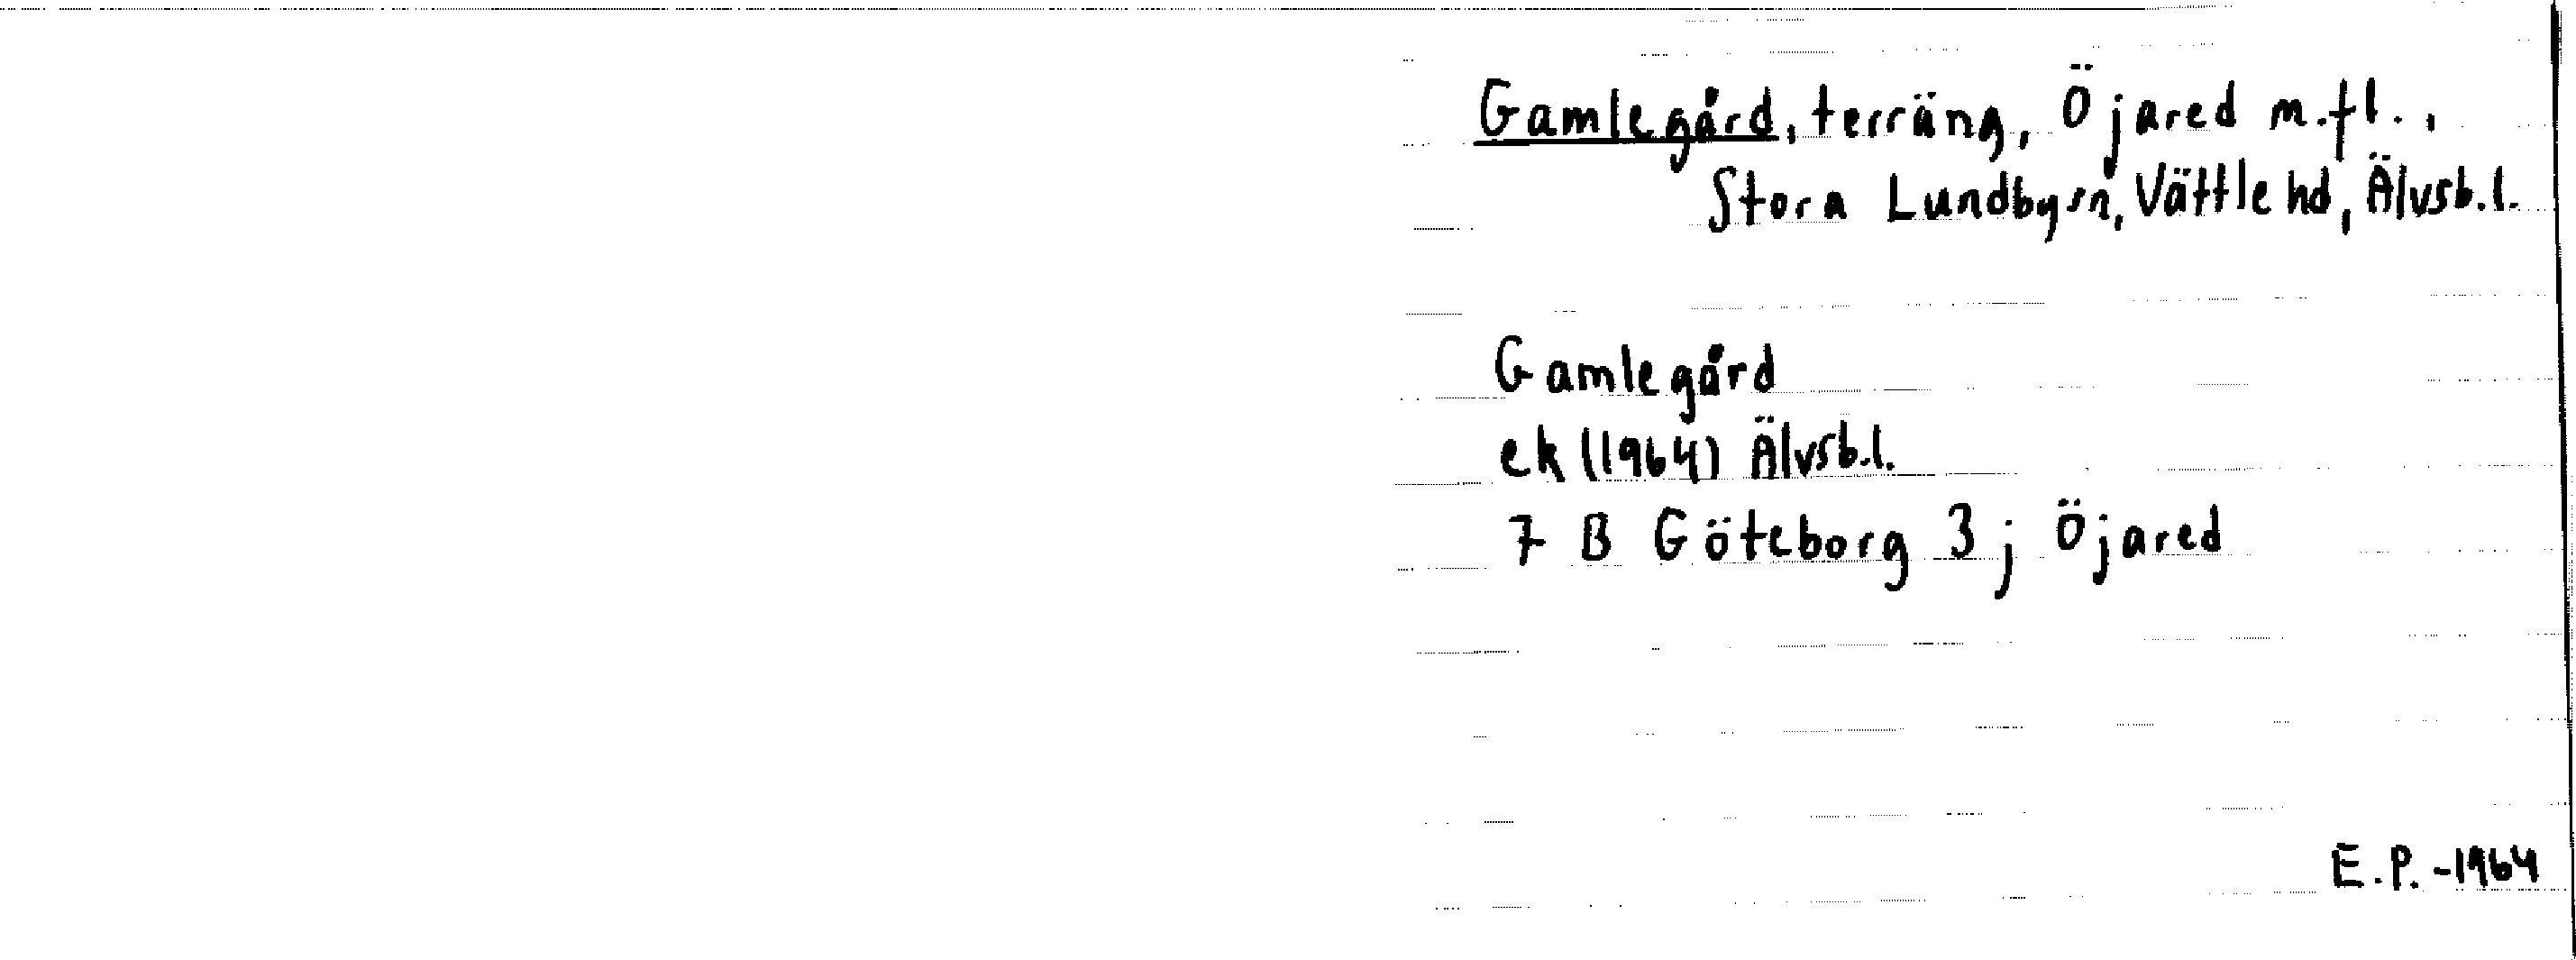 Gamlegård, terräng, Öjared m.fl.,
Stora Lundby sn, Vättle hd, Älvsb.l.
Gamlegård
ek (1964) Älvsb.l.
7 B Göteborg 3 j Öjared
E.P. -1964